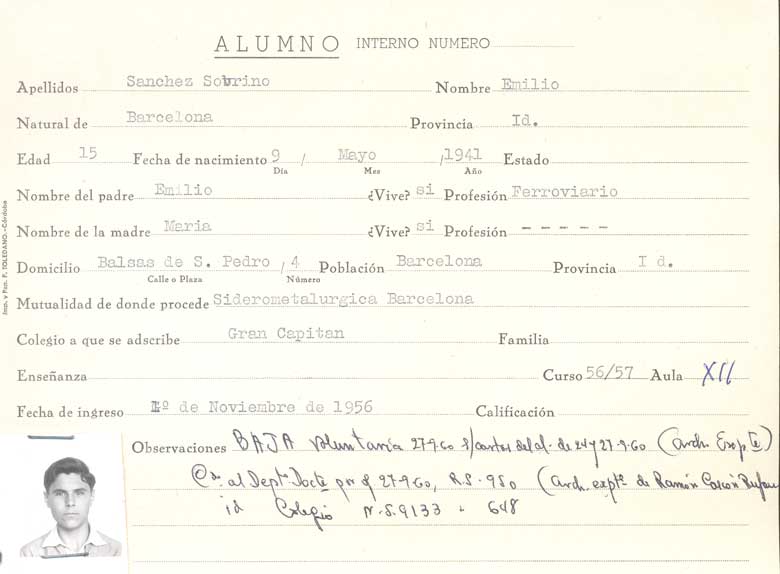 ALUMNO INTERNO NUMERO
Apellidos Sanchez Sobrino Nombre Emilio
Natural de Barcelona Provincia Id.
Edad 15 Fecha de nacimiento 9 / Mayo /1941 Estado
Día Mes Año
Nombre del padre Emilio ¿Vive? si Profesión Ferroviario
Nombre de la madre Maria ¿Vive? si Profesión - - - - -
Domicilio Balsas de S. Pedro / 4 Población Barcelona Provincia I d.
Calle o Plaza Número
Mutualidad de donde procede Siderometalurgica Barcelona
Colegio a que se adscribe Gran Capitan Familia
Enseñanza Curso 56/57 Aula XII
Fecha de ingreso 1º de Noviembre de 1956 Calificación
Observaciones BAJA voluntaria 27-9-60 s/cartas del al. de 24 y 27-9-60 (Arch. Expte)
al Deptº Docte por 27-9-60, R.S. 950 (Arch. exptº de Ramón
id Colegio N.S. 9133 - 648
Imp. y Pap. F. TOLEDANO.-Córdoba